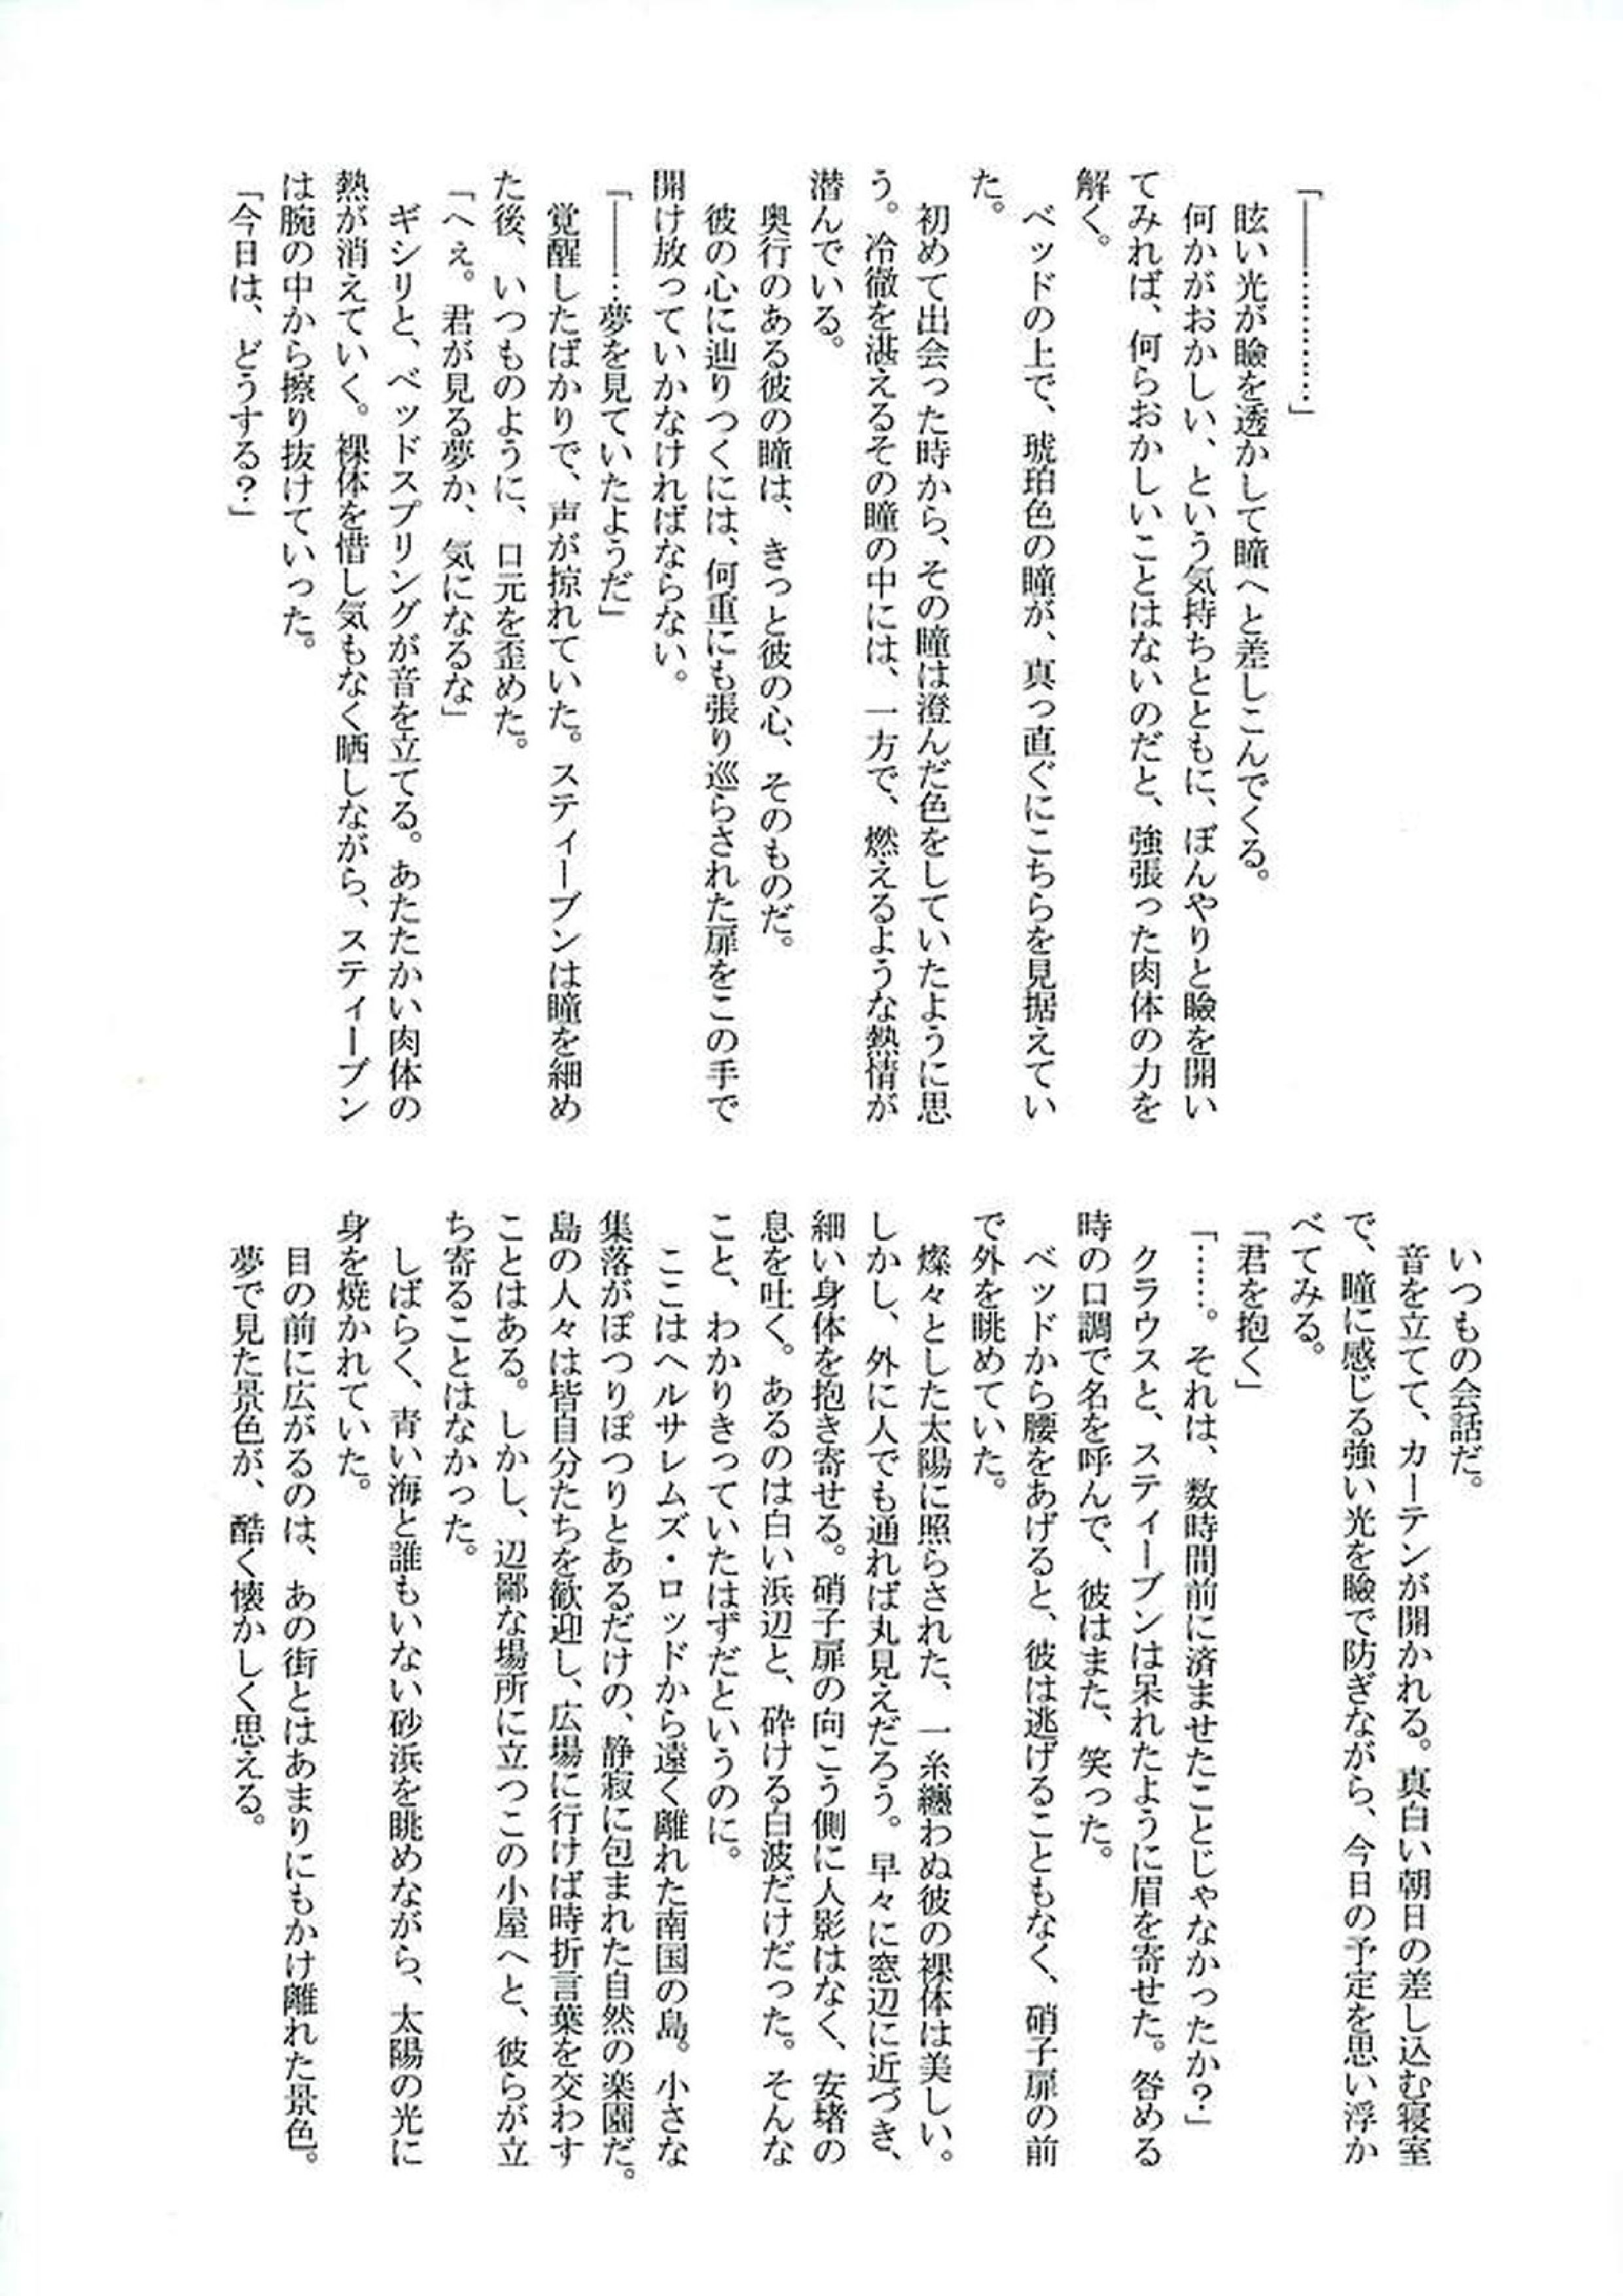 「――…………」
眩い光が瞼を透かして瞳へと差しこんでくる。
何かがおかしい、という気持ちとともに、ぼんやりと瞼を開い
てみれば、何らおかしいことはないのだと、強張った肉体の力を
解く。
ベッドの上で、琥珀色の瞳が、真っ直ぐにこちらを見据えてい
た。
初めて出会った時から、その瞳は澄んだ色をしていたように思
う。冷徹を湛えるその瞳の中には、一方で、燃えるような熱情が
潜んでいる。
奥行のある彼の瞳は、きっと彼の心、そのものだ。
彼の心に辿りつくには、何重にも張り巡らされた扉をこの手で
開け放っていかなければならない。
「――…夢を見ていたようだ」
覚醒したばかりで、声が掠れていた。スティーブンは瞳を細め
た後、いつものように、口元を歪めた。
「へぇ。君が見る夢か、気になるな」
ギシリと、ベッドスプリングが音を立てる。あたたかい肉体の
熱が消えていく。裸体を惜し気もなく晒しながら、スティーブン
は腕の中から擦り抜けていった。
「今日は、どうする？」
いつもの会話だ。
音を立てて、カーテンが開かれる。真白い朝日の差し込む寝室
で、瞳に感じる強い光を瞼で防ぎながら、今日の予定を思い浮か
べてみる。
「君を抱く」
「……。それは、数時間前に済ませたことじゃなかったか？」
クラウスと、スティーブンは呆れたように眉を寄せた。咎める
時の口調で名を呼んで、彼はまた、笑った。
ベッドから腰をあげると、彼は逃げることもなく、硝子扉の前
で外を眺めていた。
燦々とした太陽に照らされた、一糸纏わぬ彼の裸体は美しい。
しかし、外に人でも通れば丸見えだろう。早々に窓辺に近づき、
細い身体を抱き寄せる。硝子扉の向こう側に人影はなく、安堵の
息を吐く。あるのは白い浜辺と、砕ける白波だけだった。そんな
こと、わかりきっていたはずだというのに。
ここはヘルサレムズ・ロッドから遠く離れた南国の島。小さな
集落がぽつりぽつりとあるだけの、静寂に包まれた自然の楽園だ。
島の人々は皆自分たちを歓迎し、広場に行けば時折言葉を交わす
ことはある。しかし、辺鄙な場所に立つこの小屋へと、彼らが立
ち寄ることはなかった。
しばらく、青い海と誰もいない砂浜を眺めながら、太陽の光に
身を焼かれていた。
目の前に広がるのは、あの街とはあまりにもかけ離れた景色。
夢で見た景色が、酷く懐かしく思える。